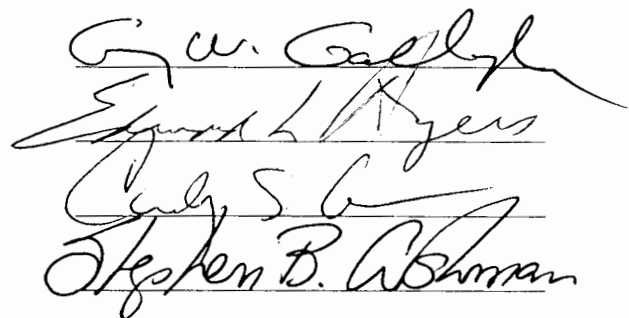 Gary W. Gallagher
Edward L. Ayers
Cindy S. A
Stephen B. Cushman